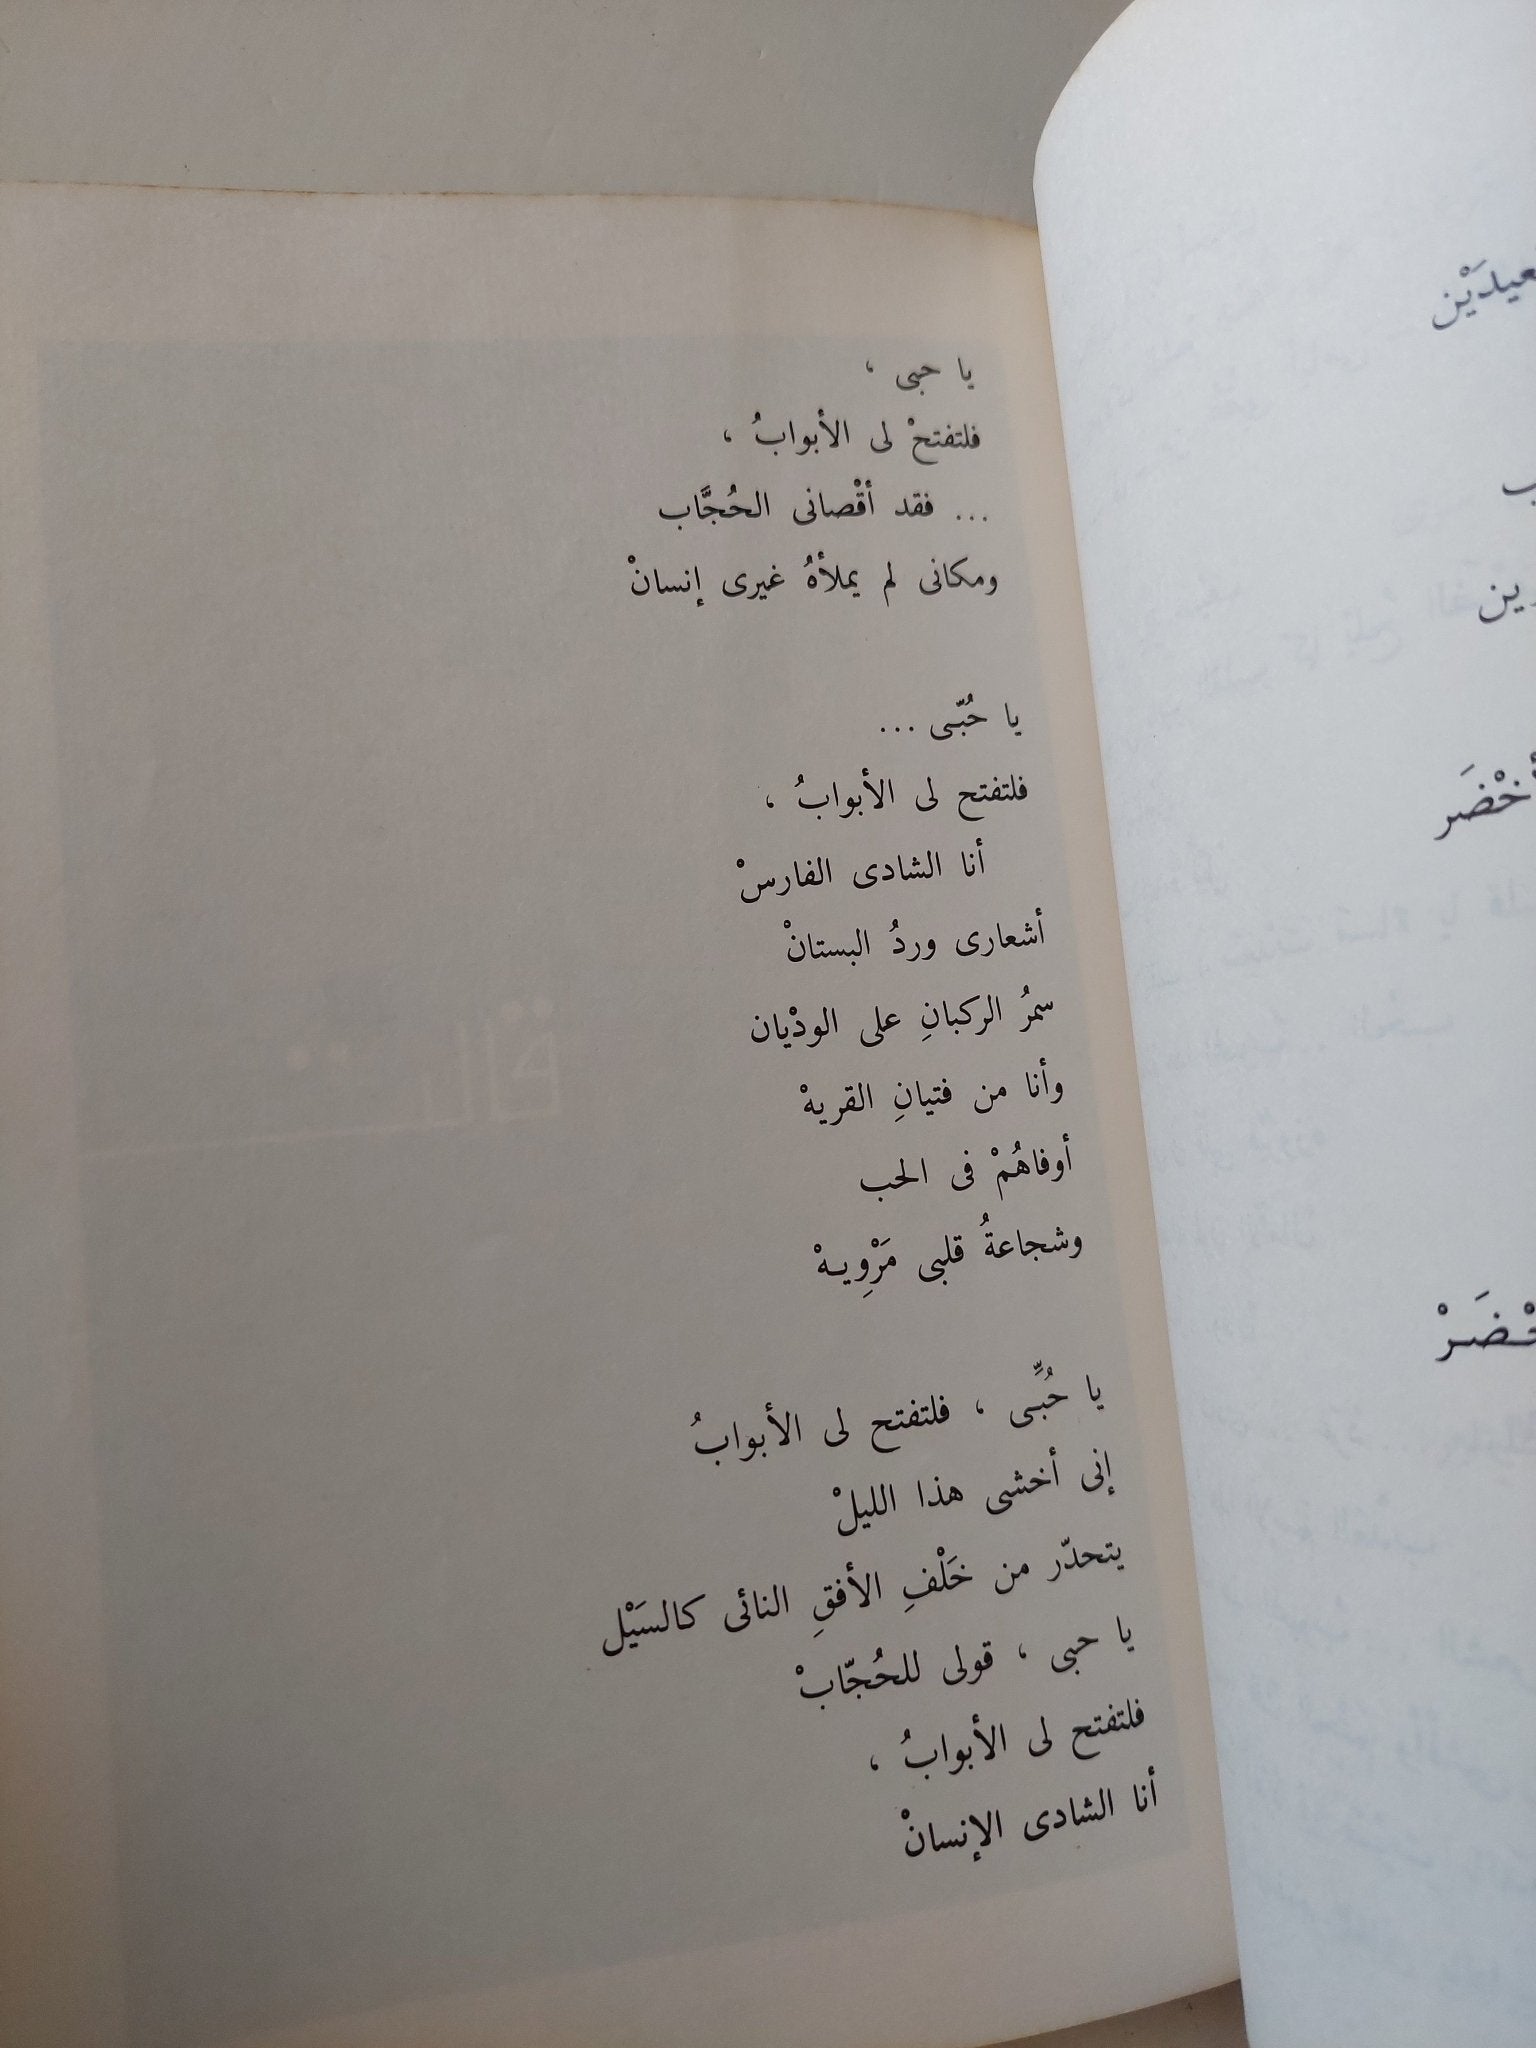 يا حبى ،
فلتفتحْ لى الأبوابُ ،
... فقد أقْصانى الحُجَّاب
ومكانى لم يملأهُ غيرى إنسانْ
يا حُبّى ...
فلتفتح لى الأبوابُ ،
أنا الشادى الفارسْ
أشعارى وردُ البستانْ
سمرُ الركبانِ على الودْيان
وأنا من فتيانِ القريهْ
أوفاهُمْ فى الحب
وشجاعةُ قلبى مَرْوِيهْ
يا حُبِّى ، فلتفتح لى الأبوابُ
إنى أخشى هذا الليلْ
يتحدّر من خَلْفِ الأفقِ النائى كالسَيْل
يا حبى ، قولى للحُجّابْ
فلتفتح لى الأبوابُ ،
أنا الشادى الإنسانْ